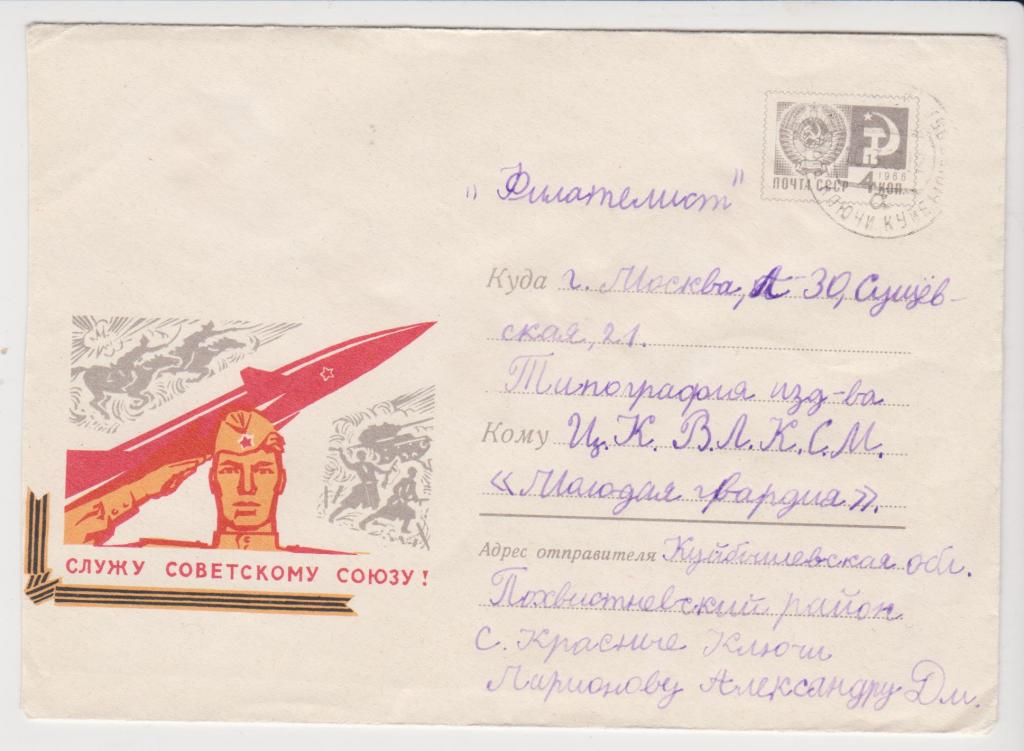 „Филателист"
ПОЧТА СССР 1966 4 КОП.
КЛЮЧИ КУЙБ
Куда г. Москва, А-30, Сущёв-
ская, 21.
Типография изд-ва
Кому Ц.К. В.Л.К.С.М.
«Молодая гвардия».
СЛУЖУ СОВЕТСКОМУ СОЮЗУ!
Адрес отправителя Куйбышевская обл.
Похвистневский район
с. Красные Ключи
Ларионову Александру Дм.